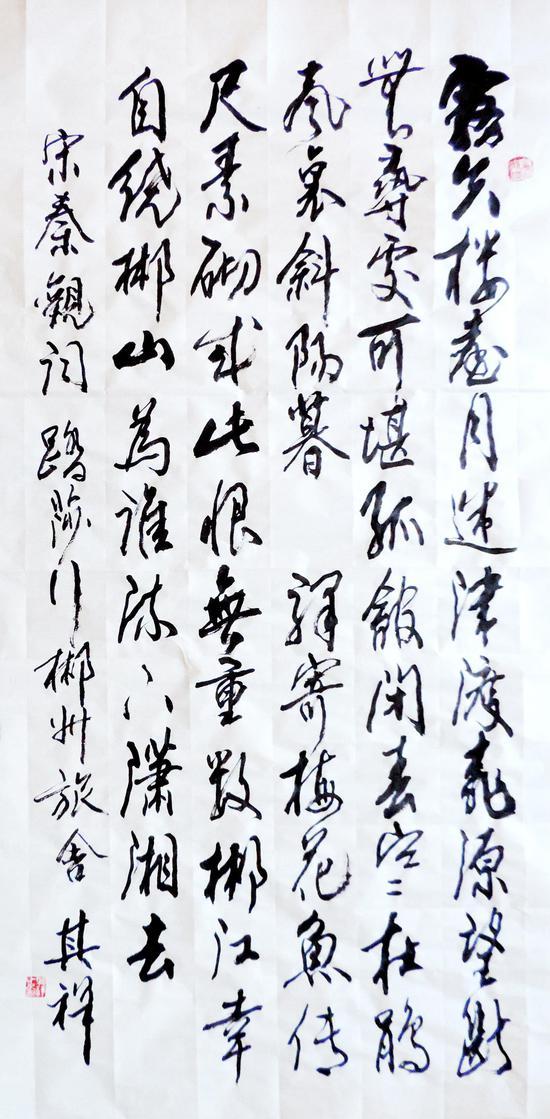 霧失楼臺月迷津渡桃源望断
無尋處可堪孤館闭春寒杜鹃
声裏斜陽暮 驛寄梅花魚传
尺素砌成此恨無重数郴江幸
自绕郴山為谁流下瀟湘去
宋秦觀词踏莎行郴州旅舍 其祥